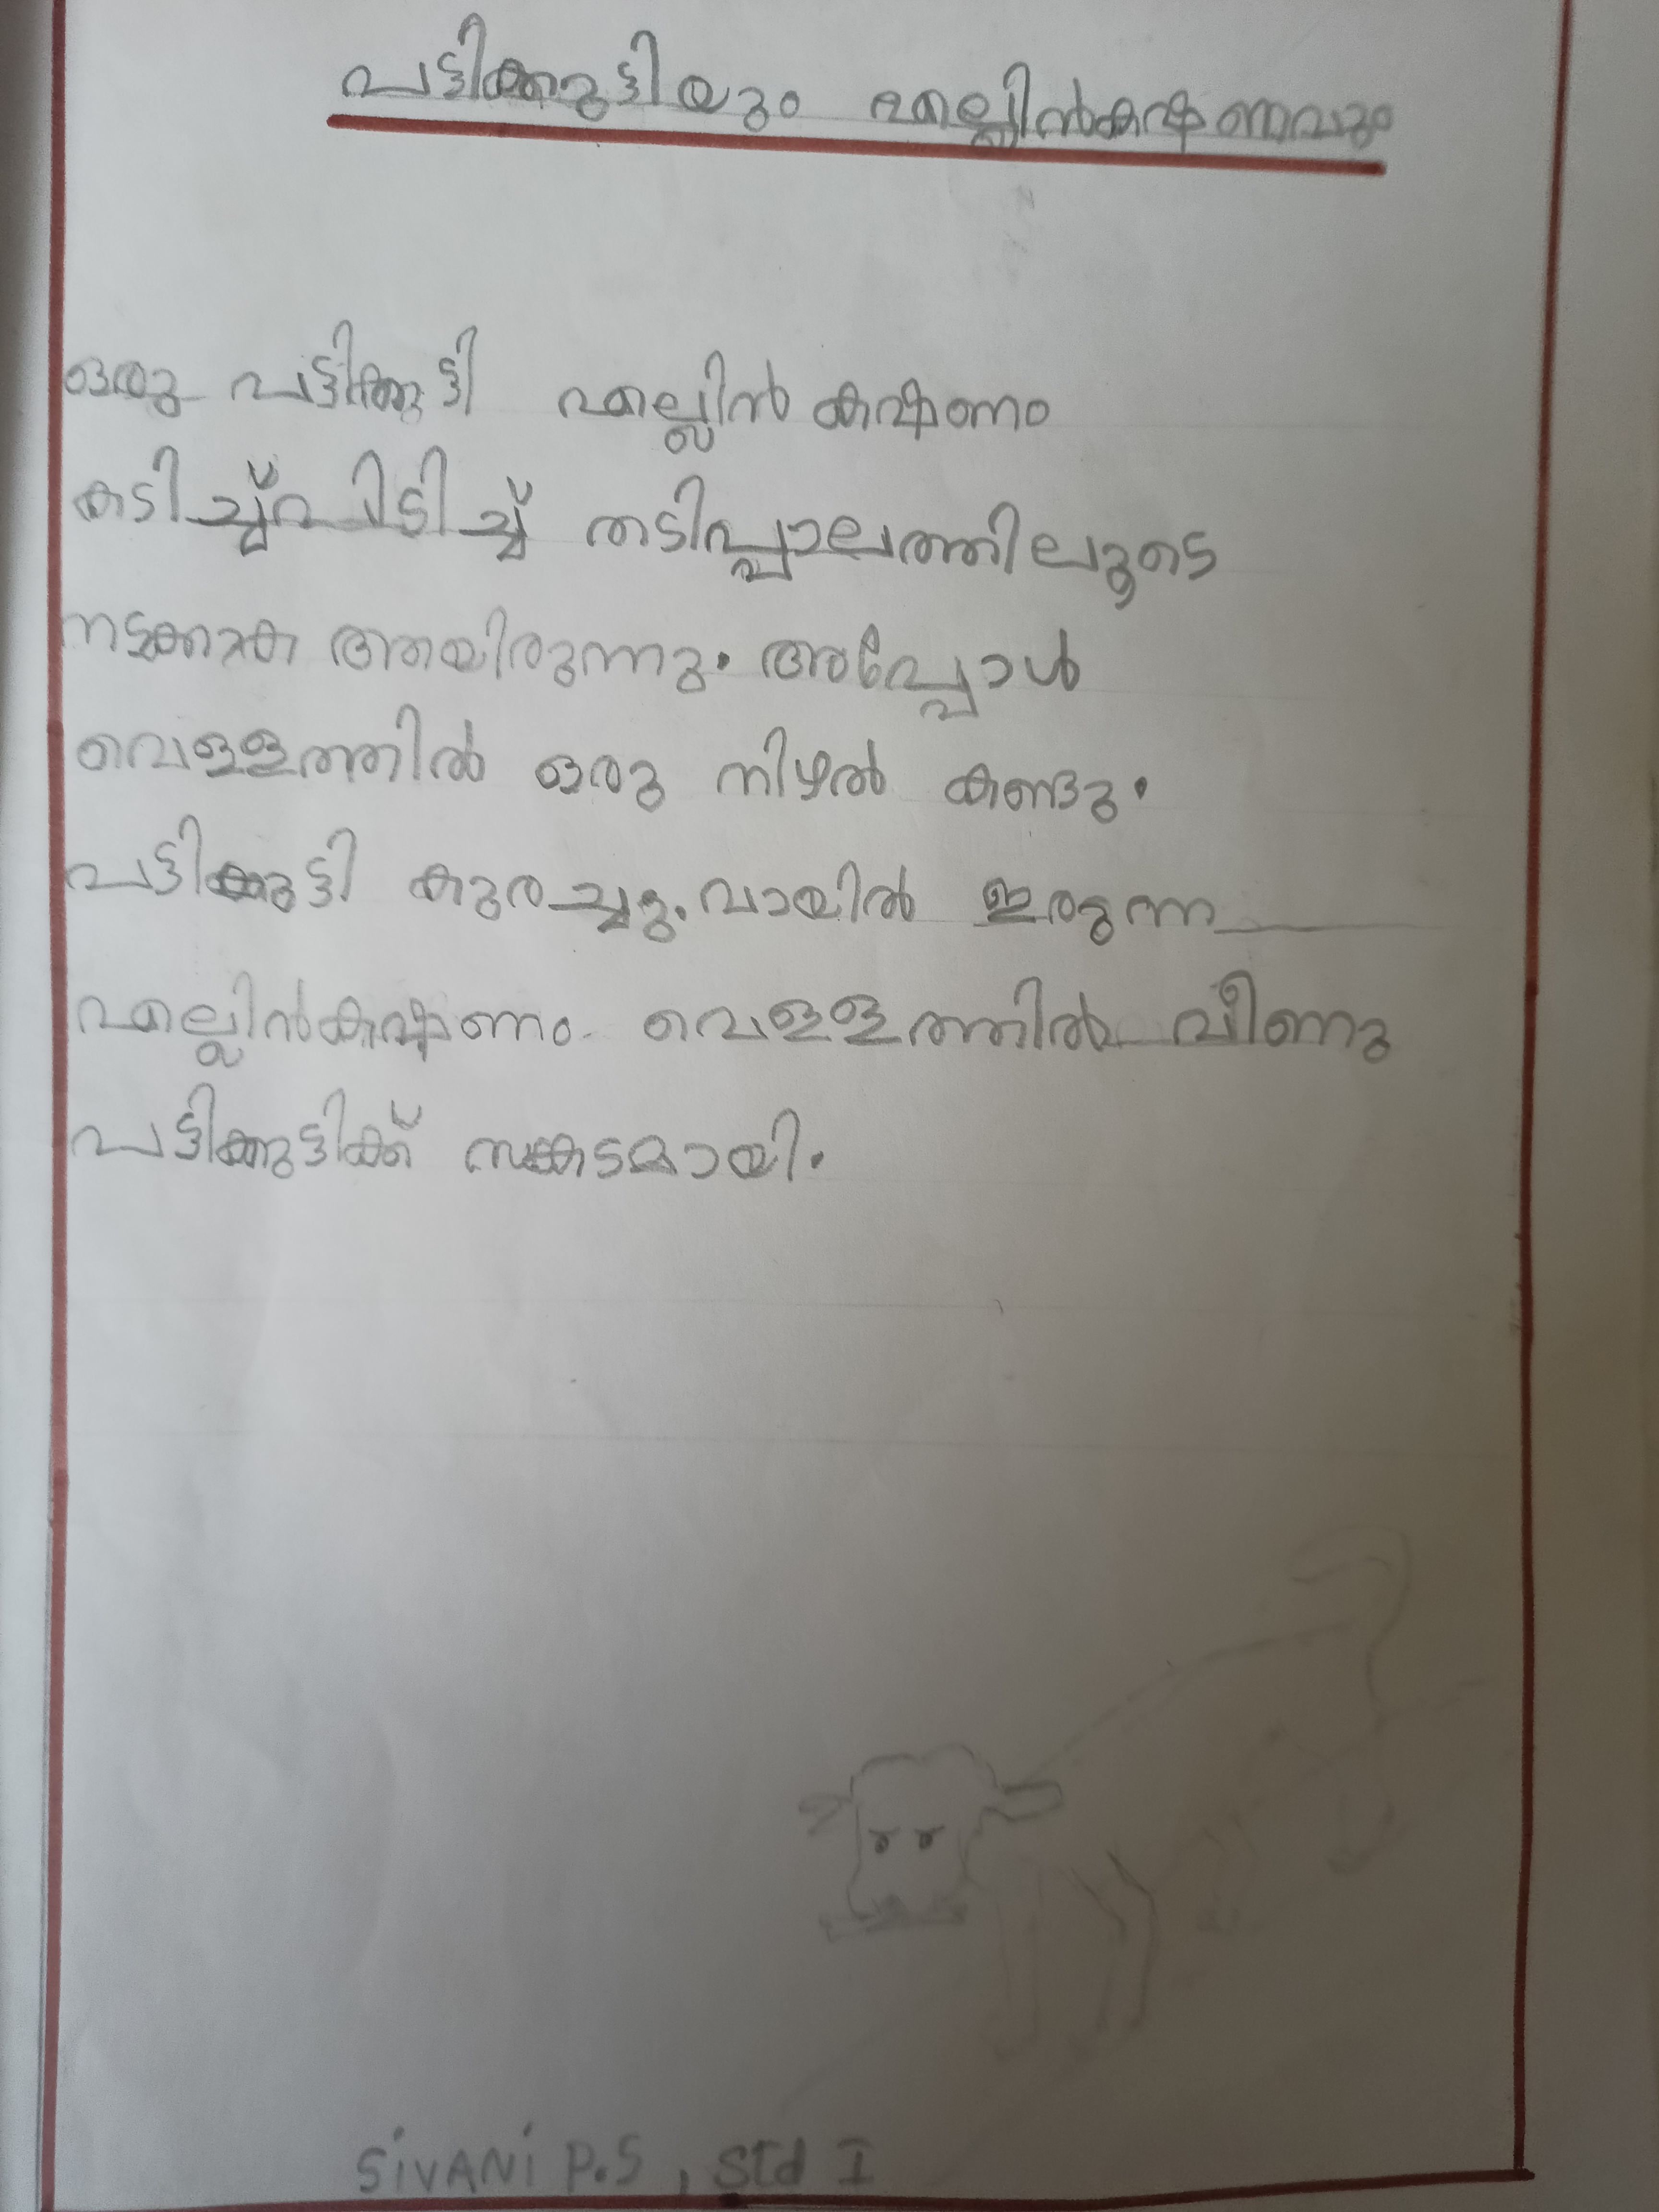 പട്ടിക്കുട്ടിയും എല്ലിൻകഷണവും
ഒരു പട്ടിക്കുട്ടി എല്ലിൻ കഷണം
കടിച്ച്പിടിച്ച് തടിപ്പാലത്തിലൂടെ
നടക്കുക ആയിരുന്നു. അപ്പോൾ
വെള്ളത്തിൽ ഒരു നിഴൽ കണ്ടു.
പട്ടിക്കുട്ടി കുരച്ചു. വായിൽ ഇരുന്ന
എല്ലിൻകഷണം വെള്ളത്തിൽ വീണു
പട്ടിക്കുട്ടിക്ക് സങ്കടമായി.
SiVANi P.S, Std I